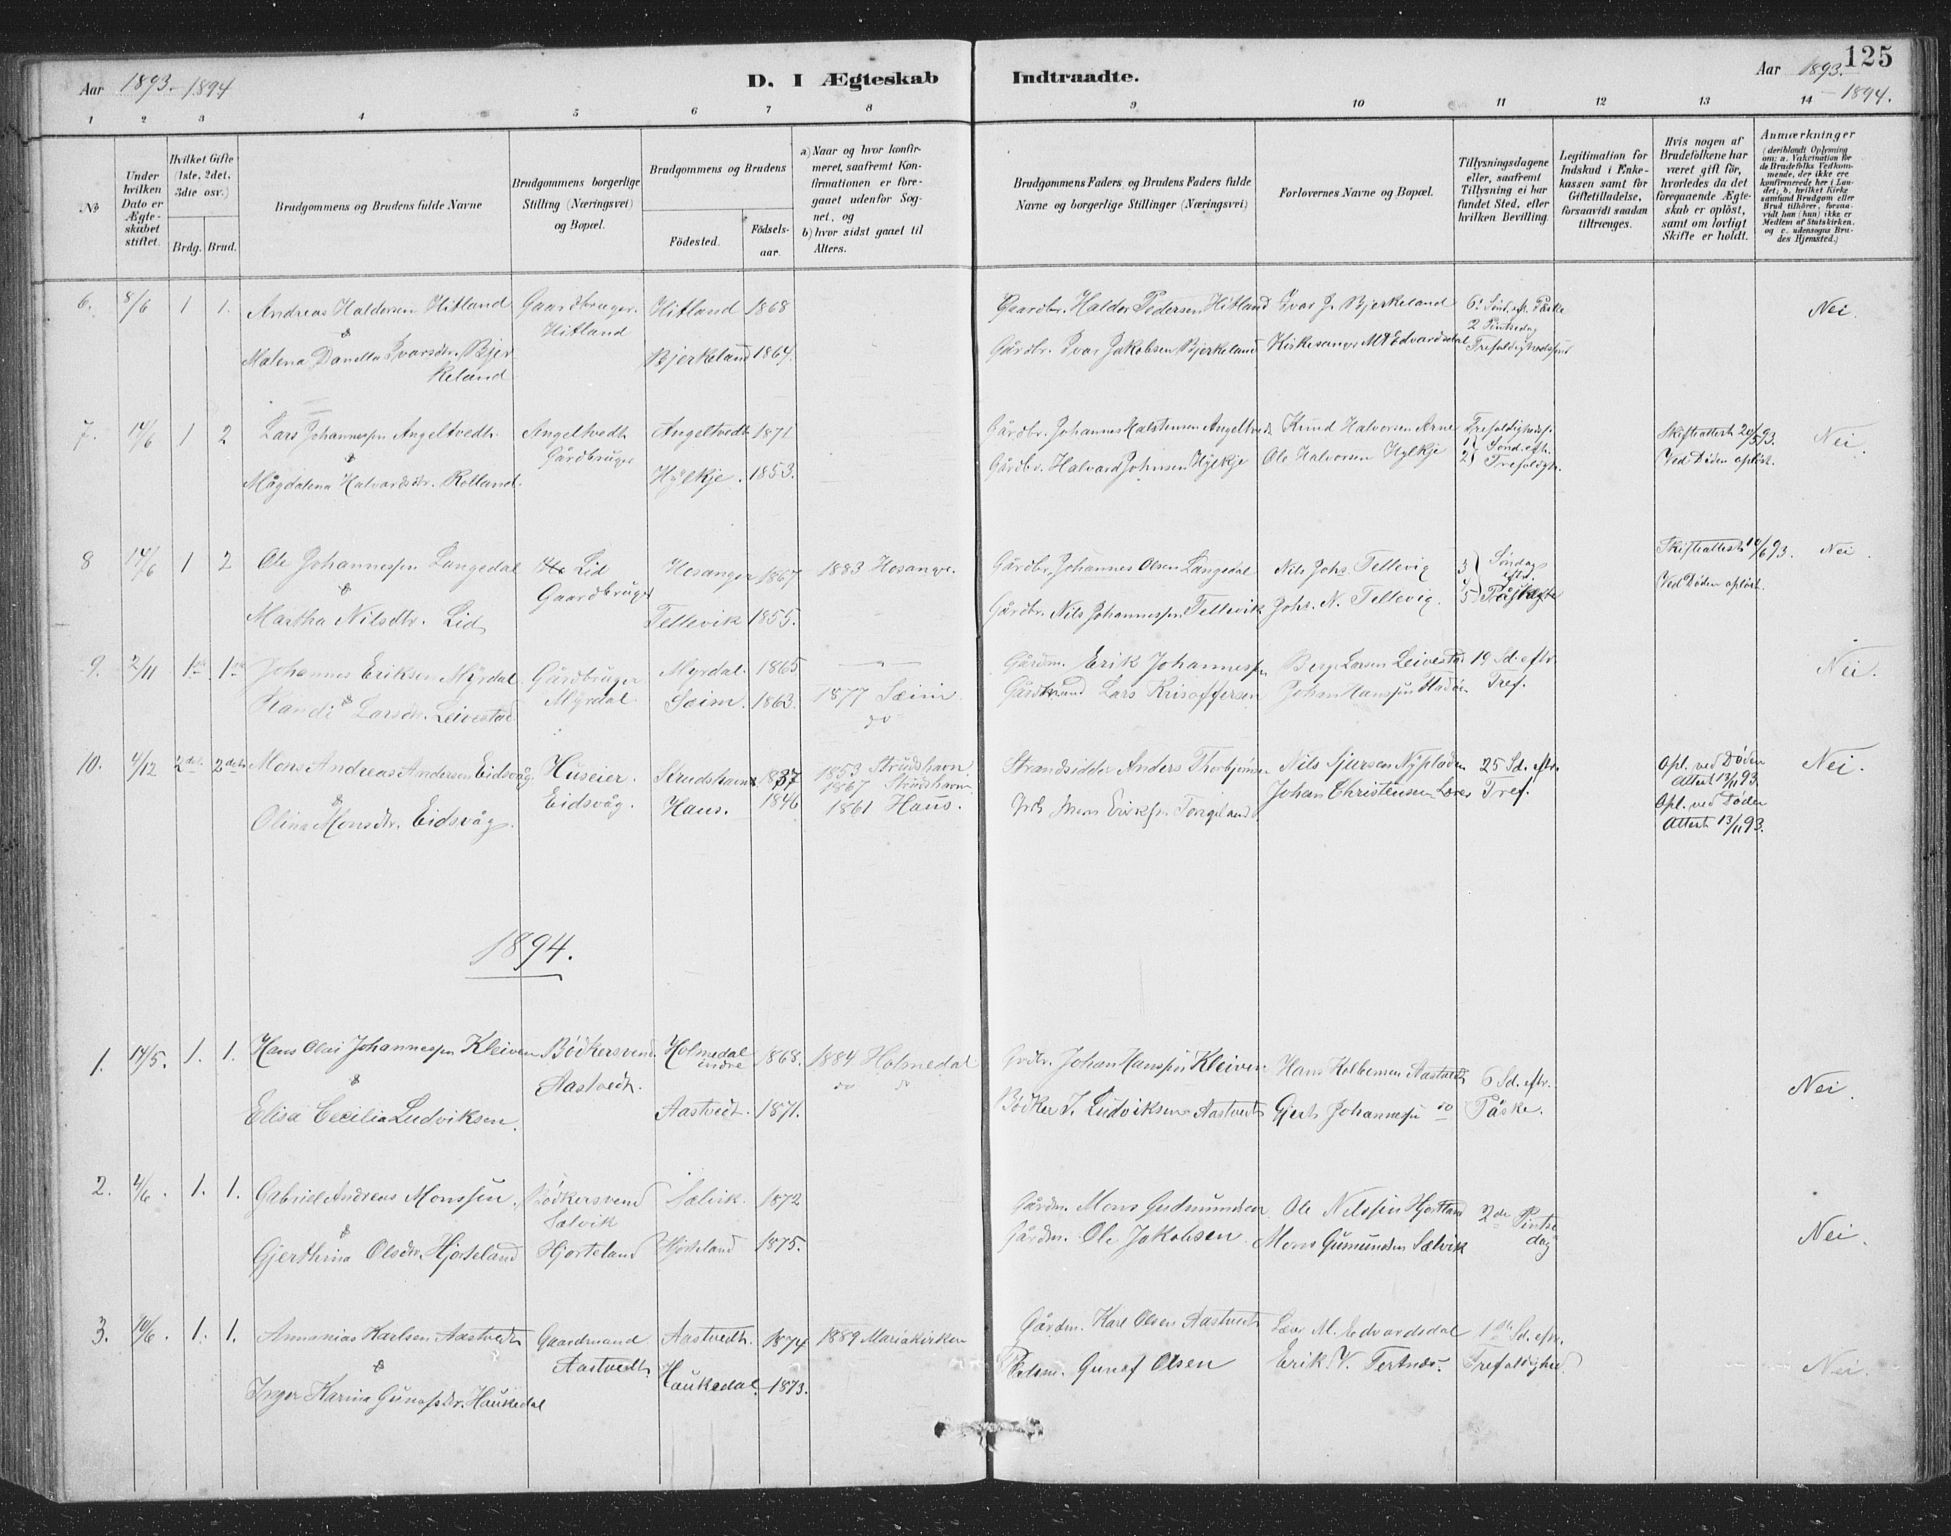 125
Aar 1893-1894
D. I Ægteskab Indtraadte.
Aar 1893.
- 1894.
1 2 3 4 5 6 7 8 9 10 11 12 13 14
No
Under hvilken Dato er Ægteskabet stiftet.
Hvilket Gifte (1ste, 2det, 3die osv.)
Brdg. Brud.
Brudgommens og Brudens fulde Navne
Brudgommens borgerlige Stilling (Næringsvei) og Bopæl.
Brudgommens og Brudens
Fødested.
Fødselsaar.
a) Naar og hvor konfirmeret, saafremt Konfirmationen er foregaaet udenfor Sognet, og
b) hvor sidst gaaet til Alters.
Brudgommens Faders og Brudens Faders fulde Navne og borgerlige Stillinger (Næringsvei)
Forlovernes Navne og Bopæl.
Tillysningsdagene eller, saafremt Tillysning ei har fundet Sted, efter hvilken Bevilling.
Legitimation for Indskud i Enkekassen samt for Giftetilladelse, forsaavidt saadan tiltrænges.
Hvis nogen af Brudefolkene har været gift før, hvorledes da det foregaaende Ægteskab er opløst, samt om lovligt Skifte er holdt.
Anmærkninger (deriblandt Oplysning om: a. Vakcination for de Brudefolks Vedkommende, der ikke ere konfirmerede her i Landet; b. hvilket Kirkesamfund Brudgom eller Brud tilhører, forsaavidt han (hun) ikke er Medlem af Statskirken, og c. udensogns Brudes Hjemsted.)
6. 8/6 1 1. Andreas Haldorsen Hitland Gaardbruger. Hitland 1868 Gaardbr. Halder Pedersen Hitland Ivar J. Bjerkeland 6. Sønd. eft. Påske Nei.
& Hitland 2 Pintsedag
Malena Danella Ivarsdr. Bjerkeland Bjerkeland 1864. Gårdbr. Ivar Jakobsen Bjerkeland Kirkesanger M Edvardsdal Trefoldighedssønd
7. 14/6 1 2 Lars Johannessen Angeltvedt Angeltvedt Angeltvedt 1871 Gårdbr. Johannes Angeltvedt Knud Halvorsen Arne Skifteattest 20/5 93. Nei.
& Gårdbruger 1 2 Sønd. efter
Magdalena Halvardsdr. Rolland. Hylkje. 1853. Gårdbr. Halvard Johnsen Hylkje Ole Halvorsen Hylkje Trefoldigh. Ved Døden opløst.
8 14/6 1 2 Ole Johannessen Langedal Lid Hosanger 1867 1883 Hosanger. Gårdbr. Johannes Olsen Langedal Nils Johs. Tellevig 3 Søndag Skifteattest 10/6 93. Nei.
& Gaardbruger 4 eftr.
Martha Nilsdtr. Lid Tellevik 1855. Gårdbr. Nils Johannessen Tellevik Johs. N. Tellevig. 5 Påske Ved Døden opløst.
9. 2/11 1ste 1ste Johannes Eriksen Myrdal Gårdbruger Myrdal. 1865 Gårdm. Erik Johannessen Berge Larsen Leivestad 19 Sd. eftr. Nei.
Randi & Larsdr. Leivestad Myrdal. Sæim. 1863. 1877 Sæim. Gårdmand Lars Kristoffersen Johan Hansen Tref.
do
10. 4/12 2det 2det Mons Andreas Andersen Eidsvåg Huseier. Strudshavn 1837 1853 Strudshavn Strandsidder Anders Thorbjørnsen Nils Sjursen Nyplads 25 Sd. eftr. Opl. ved Døden Nei.
& Eidsvåg. Haus. 1846 1867 Strudshavn Johan Christensen Tref. Attest 13/11 93.
Olina Monsdtr. Eidsvåg. 1861 Haus. Mons Eriksen Opl. ved Døden
Attest 13/11 93.
1894.
1. 14/5. 1. 1. Hans Olai Johannessen Kleiven Bødkersvend. Holmedal indre 1868. 1884 Holmedal Grdbr. Johan Hansen Kleiven Hans Aastvedt 6 Sd. eftr. Nei.
& Aastvedt. do do
Elisa Cecilia Ludviksen. Aastvedt. 1871. Bødker J. Ludviksen Aastvedt Gjert Johannessen do Påske.
2. 4/6. 1. 1. Gabriel Andreas Monssen. Bødkersvend Sælvik. 1872 Gårdm. Mons Gudmundsen. Ole Nilssen Hjortland 2den Pintsedag Nei.
& Sælvik
Gjerthina Olsdtr. Hjorteland Hjorteland Hjorteland 1875. Gårdm. Ole Jakobsen. Mons Gumundsen Sælvik
3. 10/6. 1. 1. Annanias Karlsen Aastvedt Gaardmand Aastvedt. 1874 1889 Mariakirken Gårdm. Karl Olsen Aastvedt Lær M. Edvardsdal 1ste Sd. eftr. Nei.
& Aastvedt
Inger Karina Gunafsdr. Haukedal Haukedal. 1873. Gunaf Olsen Erik V. Tertnæs. Trefoldighed